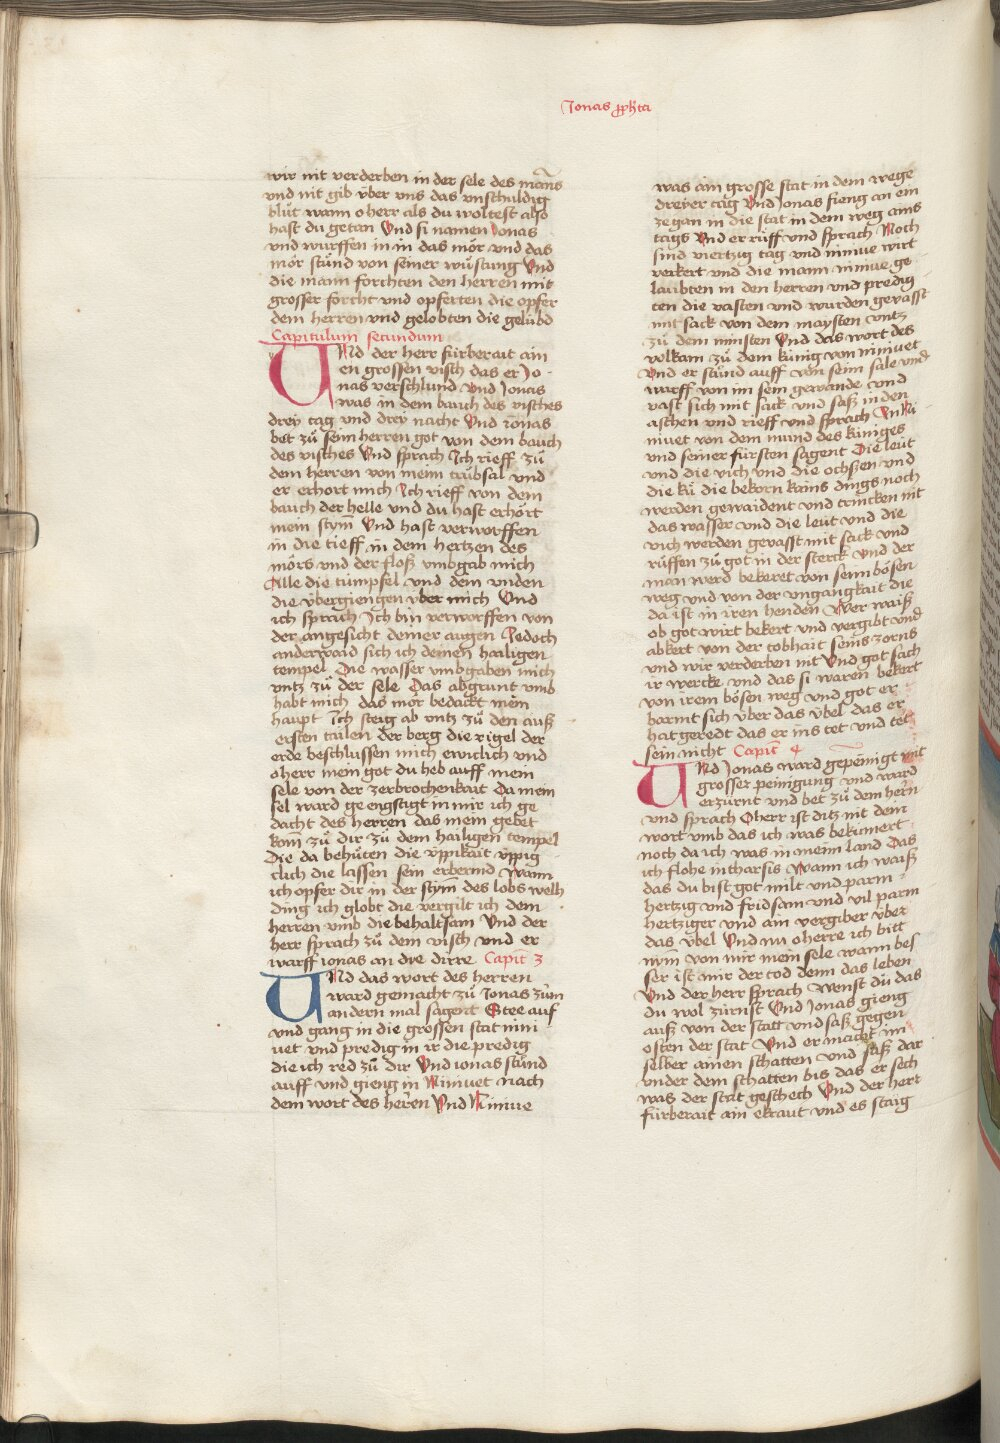 Jonas ꝓph̄ta
wir nit verderben in der sele des mañs
vnd nit gib v̈ber vns das vnschuldig
blůt wann o herr als du woltest also
hast du getan Vnd si namen Jonas
vnd wurffen in in das mór vnd das
mór stůnd von seiner wůstung Vnd
die mann forchten den herren mit
grosser forcht vnd opferten die opfer
dem herren vnd gelobten die gelübd
Capitulum secundum
VNd der herr fürberait ain
en grossen visch das er Jo
nas verschlund Vnd Jonas
was in dem bauch des visches
drey tag vnd drey nacht Vnd ionas
bet zů seim herren got von dem bauch
des visches Vnd sprach Ich rieff zů
dem herren von meim trübsal vnd
er erhort mich Ich rieff von dem
bauch der helle vnd du hast erhört
mein stym̄ Vnd hast verworffen
in die tieff in dem hertzen des
mörs vnd der floß vmbgab mich
Alle die tümpfel vnd dein vnden
die v̈bergiengen v̈ber mich Vnd
ich sprach Ich bin verworffen von
der angesicht deiner augen Jedoch
anderwaid sich ich deinen hailigen
tempel Die wasser vmbgaben mich
vntz zů der sele Das abgrunt vmb
habt mich das mór bedackt mein
haupt Ich steig ab vntz zů den auß
ersten tailen der berg die rigel der
erde beschlussen mich ewiclich vnd
o herr mein got du heb auff mein
sele von der zerbrochenkait Da mein
sel ward geengstigt in mir ich ge
dacht des herren das mein gebet
kom̄ zů dir zů dem hailigen tempel
Die da behůten die v̈ppikait v̈ppig
clich die lassen sein erbermd Wann
ich opfer dir in der stym̄ des lobs welh
ding ich globt die vergilt ich dem
herren vmb die behaltsam Vnd der
herr sprach zů dem visch vnd er
warff ionas an die dirre Capit̄ 3
VNd das wort des herren
ward gemacht zů Jonas zům
andern mal sagent Stee auf
vnd gang in die grossen stat nini
uet vnd predig in ir die predig
die ich red zů dir Vnd ionas stůnd
auff vnd gieng in Niniuet nach
dem wort des herren Vnd Niniue
was ain grosse stat in dem wege
dreyer tag Vnd Jonas fieng an ein
ze gan in die stat in dem weg ains
tags Vnd er růff vnd sprach Noch
sind viertzug tag vnd niniue wirt
verkert vnd die mann niniue ge
laubten in den herren vnd predig
ten die vasten vnd wurden gevasst
mit sack von dem maysten vntz
zů dem minsten Vnd das wort des
volkam zů dem künig von niniuet
Vnd er stůnd auff von seim sale vnd
warff von im sein gewande vnd
vast sich mit sack vnd saß in den
aschen vnd rieff vnd sprach In Ni
niuet von dem mund des küniges
vnd seiner fürsten sagent Die leüt
vnd die vich vnd die ochßen vnd
die ků die bekorn kains dings noch
werden gewaident vnd trincken nit
das wasser vnd die leüt vnd die
vich werden gevasst mit sack vnd
růffen zů got in der sterck Vnd der
man werd bekeret von seim bösen
weg vnd von der vngangkait die
da ist in iren henden Wer waiß
ob got wirt bekert vnd vergibt vnd
abkert von der tobhait seins zorns
vnd wir verderben nit Vnd got sach
ir wercke vnd das si waren bekert
von irem bösen weg vnd got er
barmt sich v̈ber das v̈bel das er
hat geredt das er ins tet vnd tet
sein nicht Capit̄ 4
VNd Jonas ward gepeinigt mit
grosser peinigung vnd ward
erzürnt vnd bet zů dem herñ
vnd sprach O herr ist ditz nit dein
wort vmb das ich was bekümert
noch da ich was in meim land Das
ich flohe in tharsis Wann ich waiß
das du bist got milt vnd parm
hertzig vnd fridsam vnd vil parm
hertziger vnd ain vergiber v̈ber
das v̈bel Vnd nu o herre ich bitt
nym̄ von mir mein sele wann bes
ser ist mir der tod denn das leben
Vnd der herr sprach wenst du das
du wol zürnst Vnd Jonas gieng
auß von der statt vnd saß gegen
osten der stat Vnd er macht im
selber ainen schatten vnd saß dar
vnder dem schatten bis das er sech
was der stat geschech Vnd der herr
fürberait ain ekraut vnd es staig